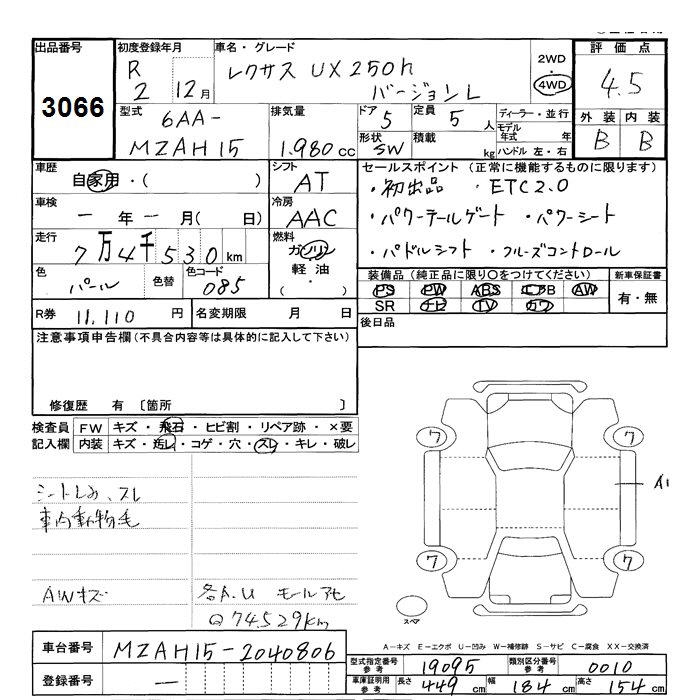 出品番号 初度登録年月 車名・グレード 評価点
3066 R 2 12月 レクサス UX250h バージョンL 2WD 4WD 4.5
型式 6AA- MZAH15 排気量 1.980cc ドア 5 定員 5人 ディーラー・並行 外装 内装
形状 SW 積載 kg モデル年式 年 ハンドル 左・右 B B
車歴 自家用・( ) シフト AT セールスポイント (正常に機能するものに限ります)
・初出品 ・ETC2.0
車検 一年一月( 日) 冷房 AAC ・パワーテールゲート ・パワーシート
走行 7万4千530km 燃料 ガソリン 軽油 ・( ) ・パドルシフト ・クルーズコントロール
色 パール 色替 色コード 085 装備品 (純正品に限り○をつけてください) 新車保証書
PS PW ABS エアB AW 有・無
SR ナビ TV カワ
R券 11,110円 名変期限 月 日 後日品
注意事項申告欄 (不具合内容等は具体的に記入して下さい)
修復歴 有 〔箇所 〕
検査員 FW キズ・飛石・ヒビ割・リペア跡・×要
記入欄 内装 キズ・汚れ・コゲ・穴・スレ・キレ・破レ
シートしみ、スレ
車内動物毛
AWキズ 各A.U モールアセ
Q74,529km
7 7
A1
7 7
スペア
A－キズ E－エクボ U－凹み W－補修跡 S－サビ C－腐食 XX－交換済
車台番号 MZAH15-2040806
型式指定番号 参考 19095 類別区分番号 参考 0010
登録番号 一 車庫証明用 参考 長さ 449cm 幅 184cm 高さ 154cm